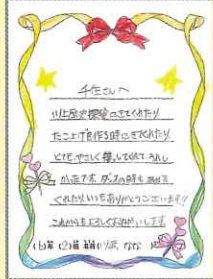 千生さんへ
川上歴史探検にきてくれたり
たこ上げ作る時にきてくれたり
とてもやさしく接してくれてうれし
かったです。ダンスの時も
くれたりいつもありがとうございます!!
これからもよろしくおねがいします。
なな